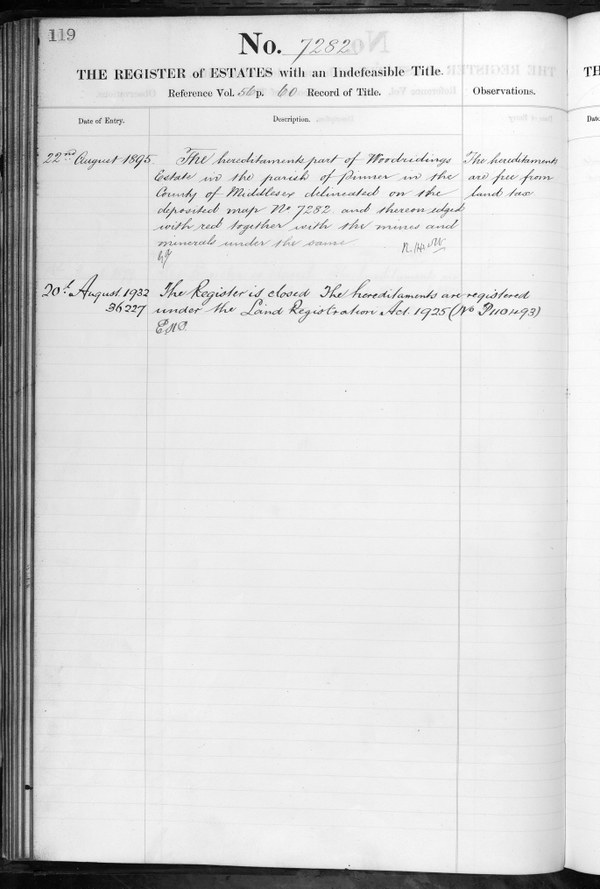 119
No. 7282
THE REGISTER of ESTATES with an Indefeasible Title.
Reference Vol. 56 p. 60 Record of Title.
Observations.
Date of Entry.
Description.
22nd August 1895
The hereditaments part of Woodridings
Estate in the parish of Pinner in the
County of Middlesex delineated on the
deposited map No 7282 and thereon edged
with red together with the mines and
minerals under the same
The hereditaments
are free from
land tax
20th August 1932
36227
The Register is closed The hereditaments are registered
under the Land Registration Act. 1925 (No P110493)
TH
Date